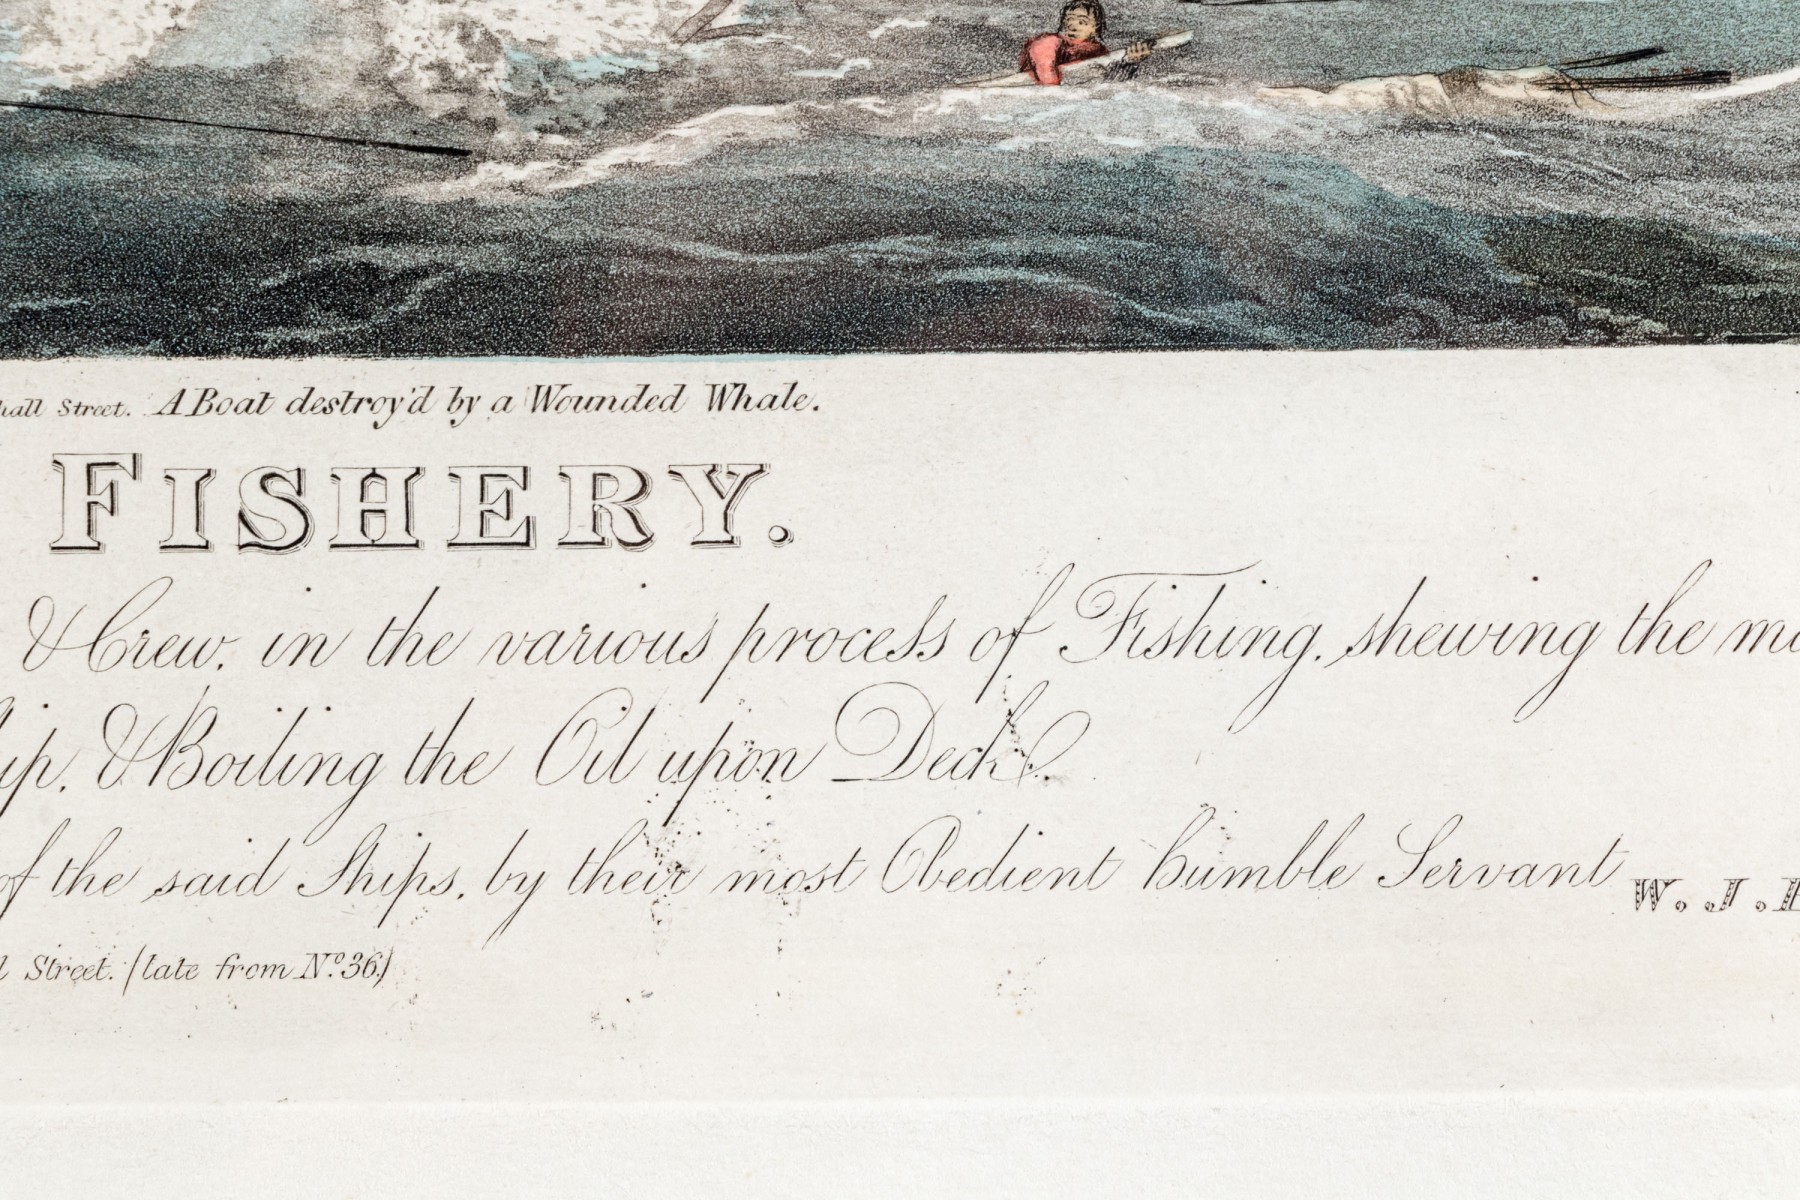 hall Street. A Boat destroy'd by a Wounded Whale.
FISHERY.
& Crew, in the various process of Fishing, shewing the
& Boiling the Oil upon Deck.
of the said Ships, by their most Obedient humble Servant W. J.
Street. (late from No. 36.)